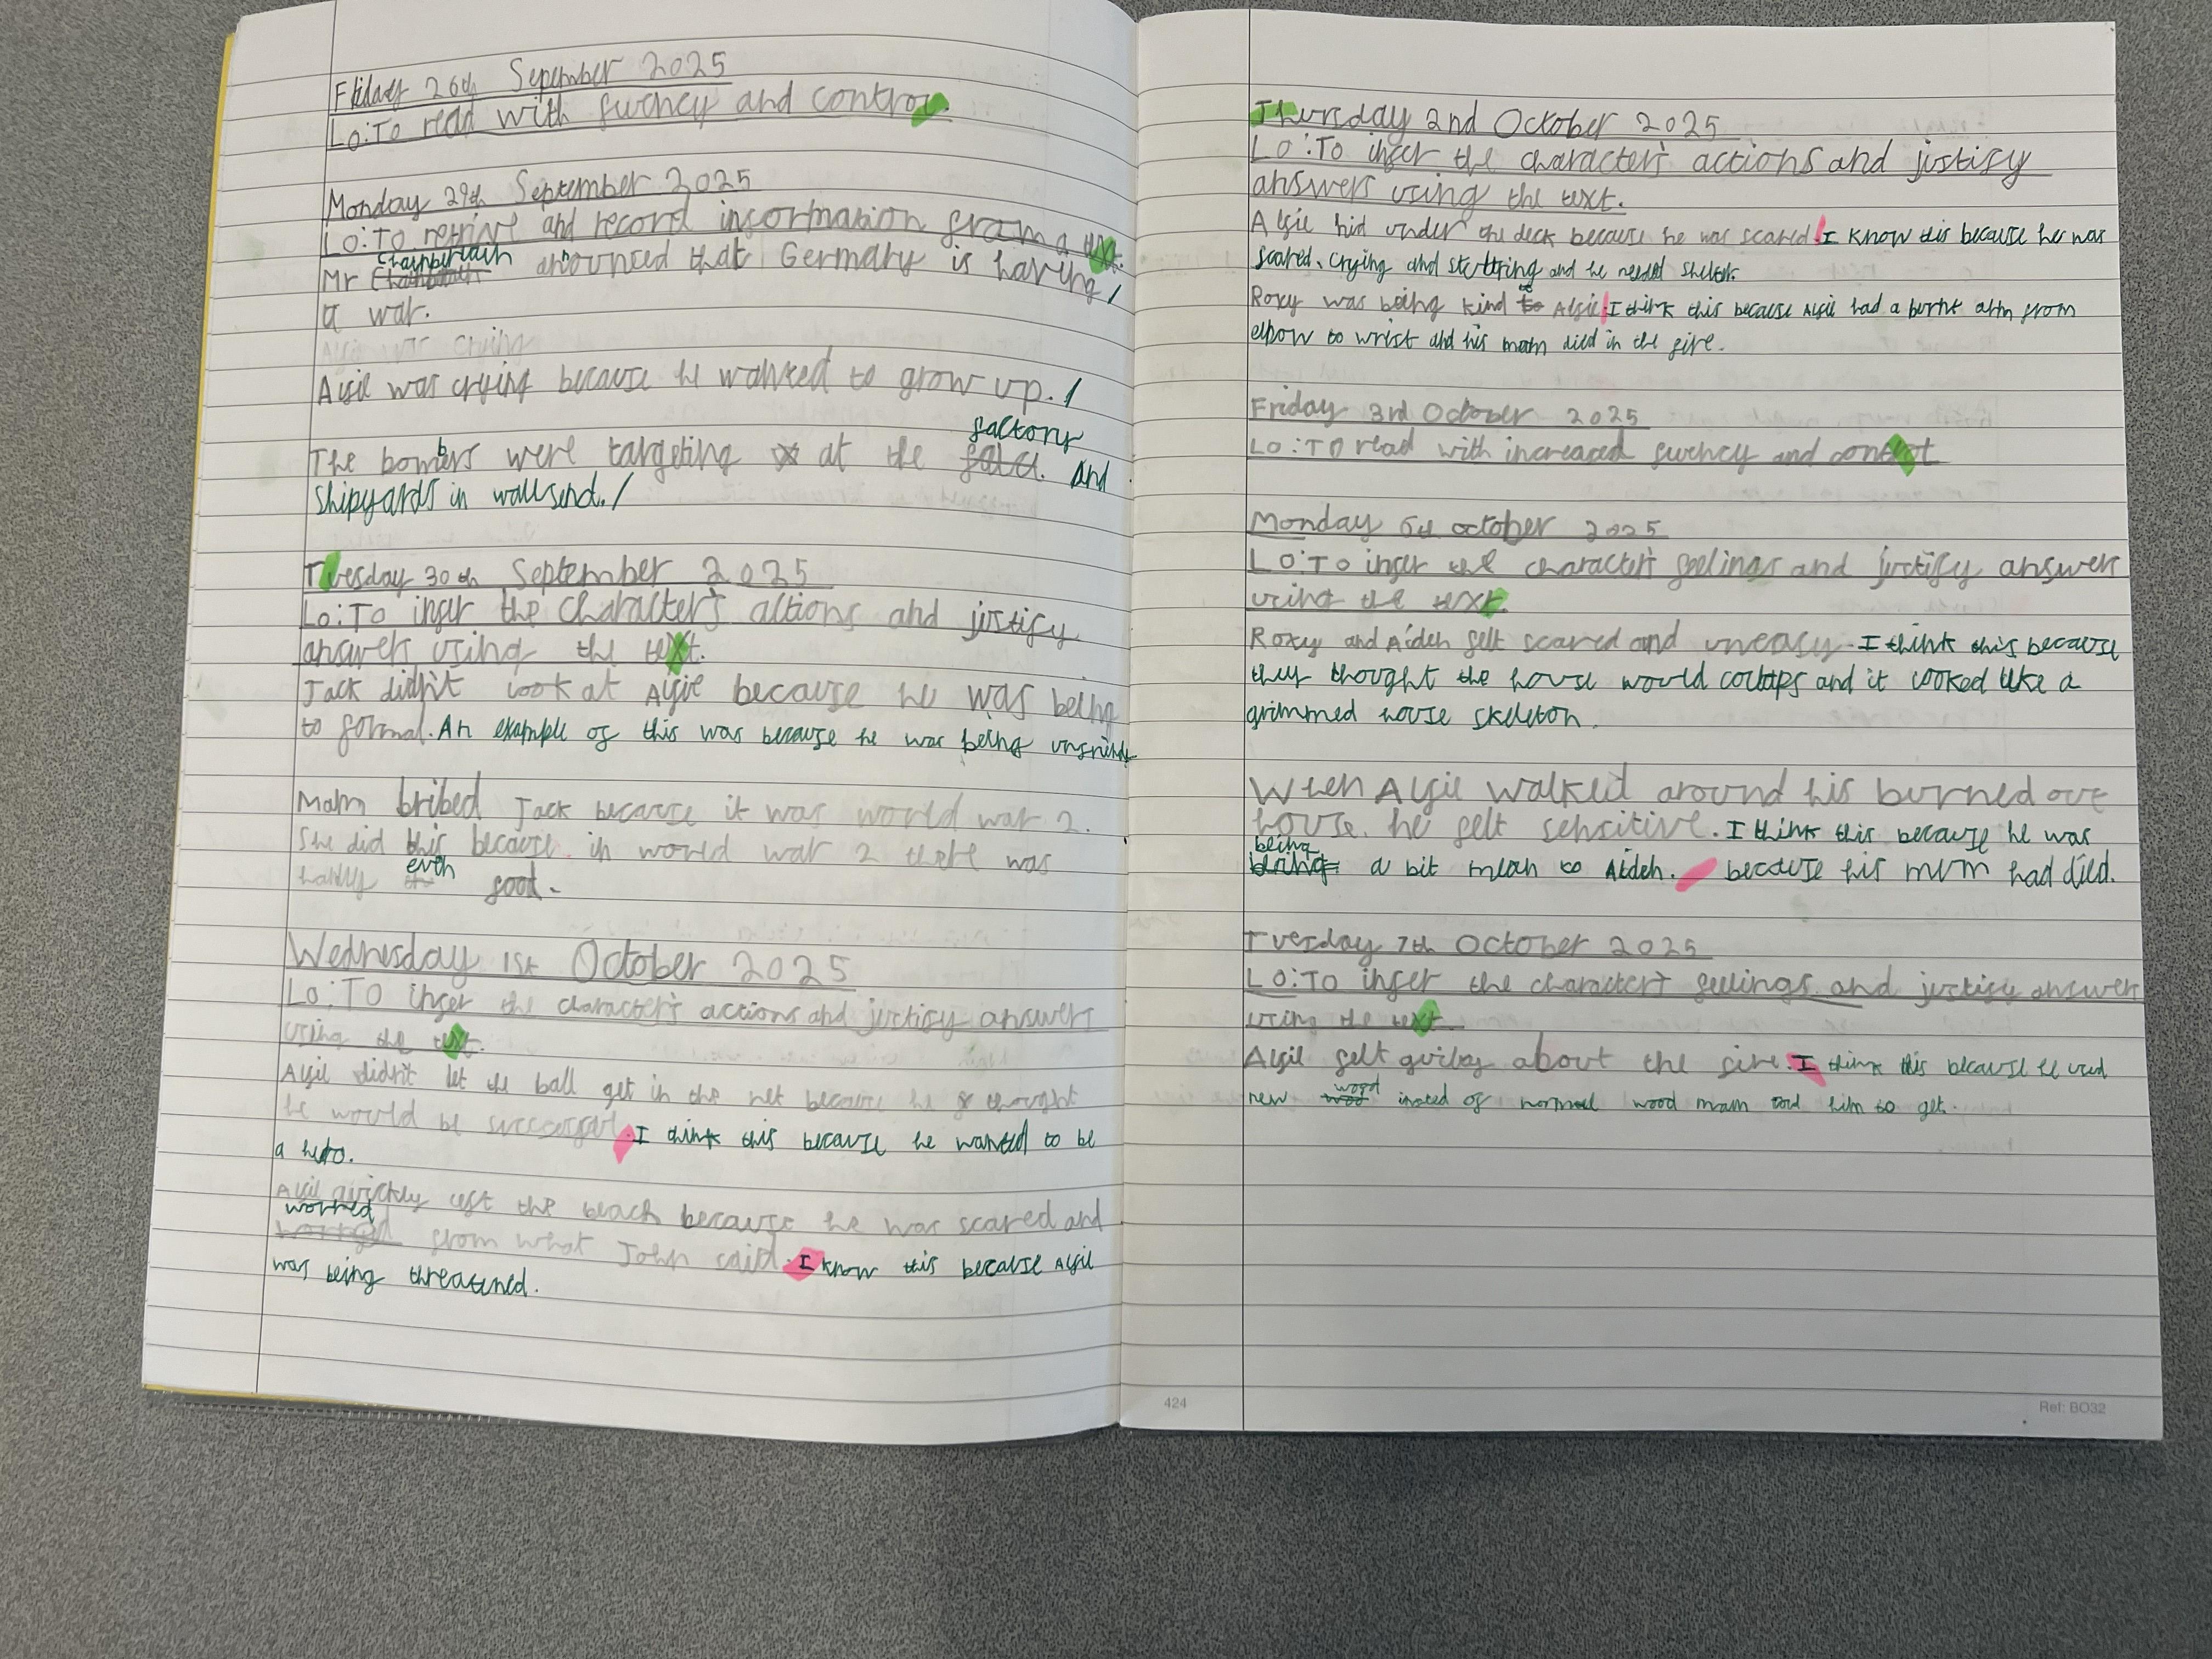 Friday 26th September 2025
Lo:To read with fluency and control.
Monday 29th September 2025
Lo:To retrive and record information from a text.
Chamberlain
Mr announced that Germany is having /
a war.
Algie was crying
Algie was crying because he wanted to grow up. /
factory
The bombers were targeting at the . And
Shipyards in wallsend. /
Tuesday 30th September 2025
Lo:To infer the character's actions and justify
answers using the text.
Jack didn't look at Algie because he was being
to formal. An example of this was because he was being unfriendly
Mam bribed Jack because it was world war 2.
She did this because in world war 2 there was
even
hardly food.
Wednesday 1st October 2025
Lo:TO infer the character's actions and justify answers
using the text.
Algie didn't let the ball get in the net because he thought
he would be successful. I think this because he wanted to be
a hero.
Algie quickly left the beach because he was scared and
worried
from what John said. I know this because Algie
was being threatened.
424
Thursday 2nd October 2025
Lo:To infer the character's actions and justify
answers using the text.
Algie hid under the deck because he was scared. I know this because he was
scared, crying and stuttring and he needed shelter.
Roxy was being kind to Algie. I think this because Algie had a burnt arm from
elbow to wrist and his mam died in the fire.
Friday 3rd October 2025
Lo:TO read with increased fluency and control
Monday 6th october 2025
Lo:To infer the character's feelings and justify answers
using the text.
Roxy and Aiden felt scared and uneasy. I think this because
they thought the house would collaps and it looked like a
grimmed house skeleton.
When Algie walked around his burned out
house, he felt sensitive. I think this because he was
being
being a bit mean to Aiden. because his mum had died.
Tuesday 7th October 2025
Lo:To infer the character's feelings and justify answers
using the text.
Algie felt guilty about the fire. I think this because he used
wood
new insted of normal wood mam told him to get.
Ref: BO32